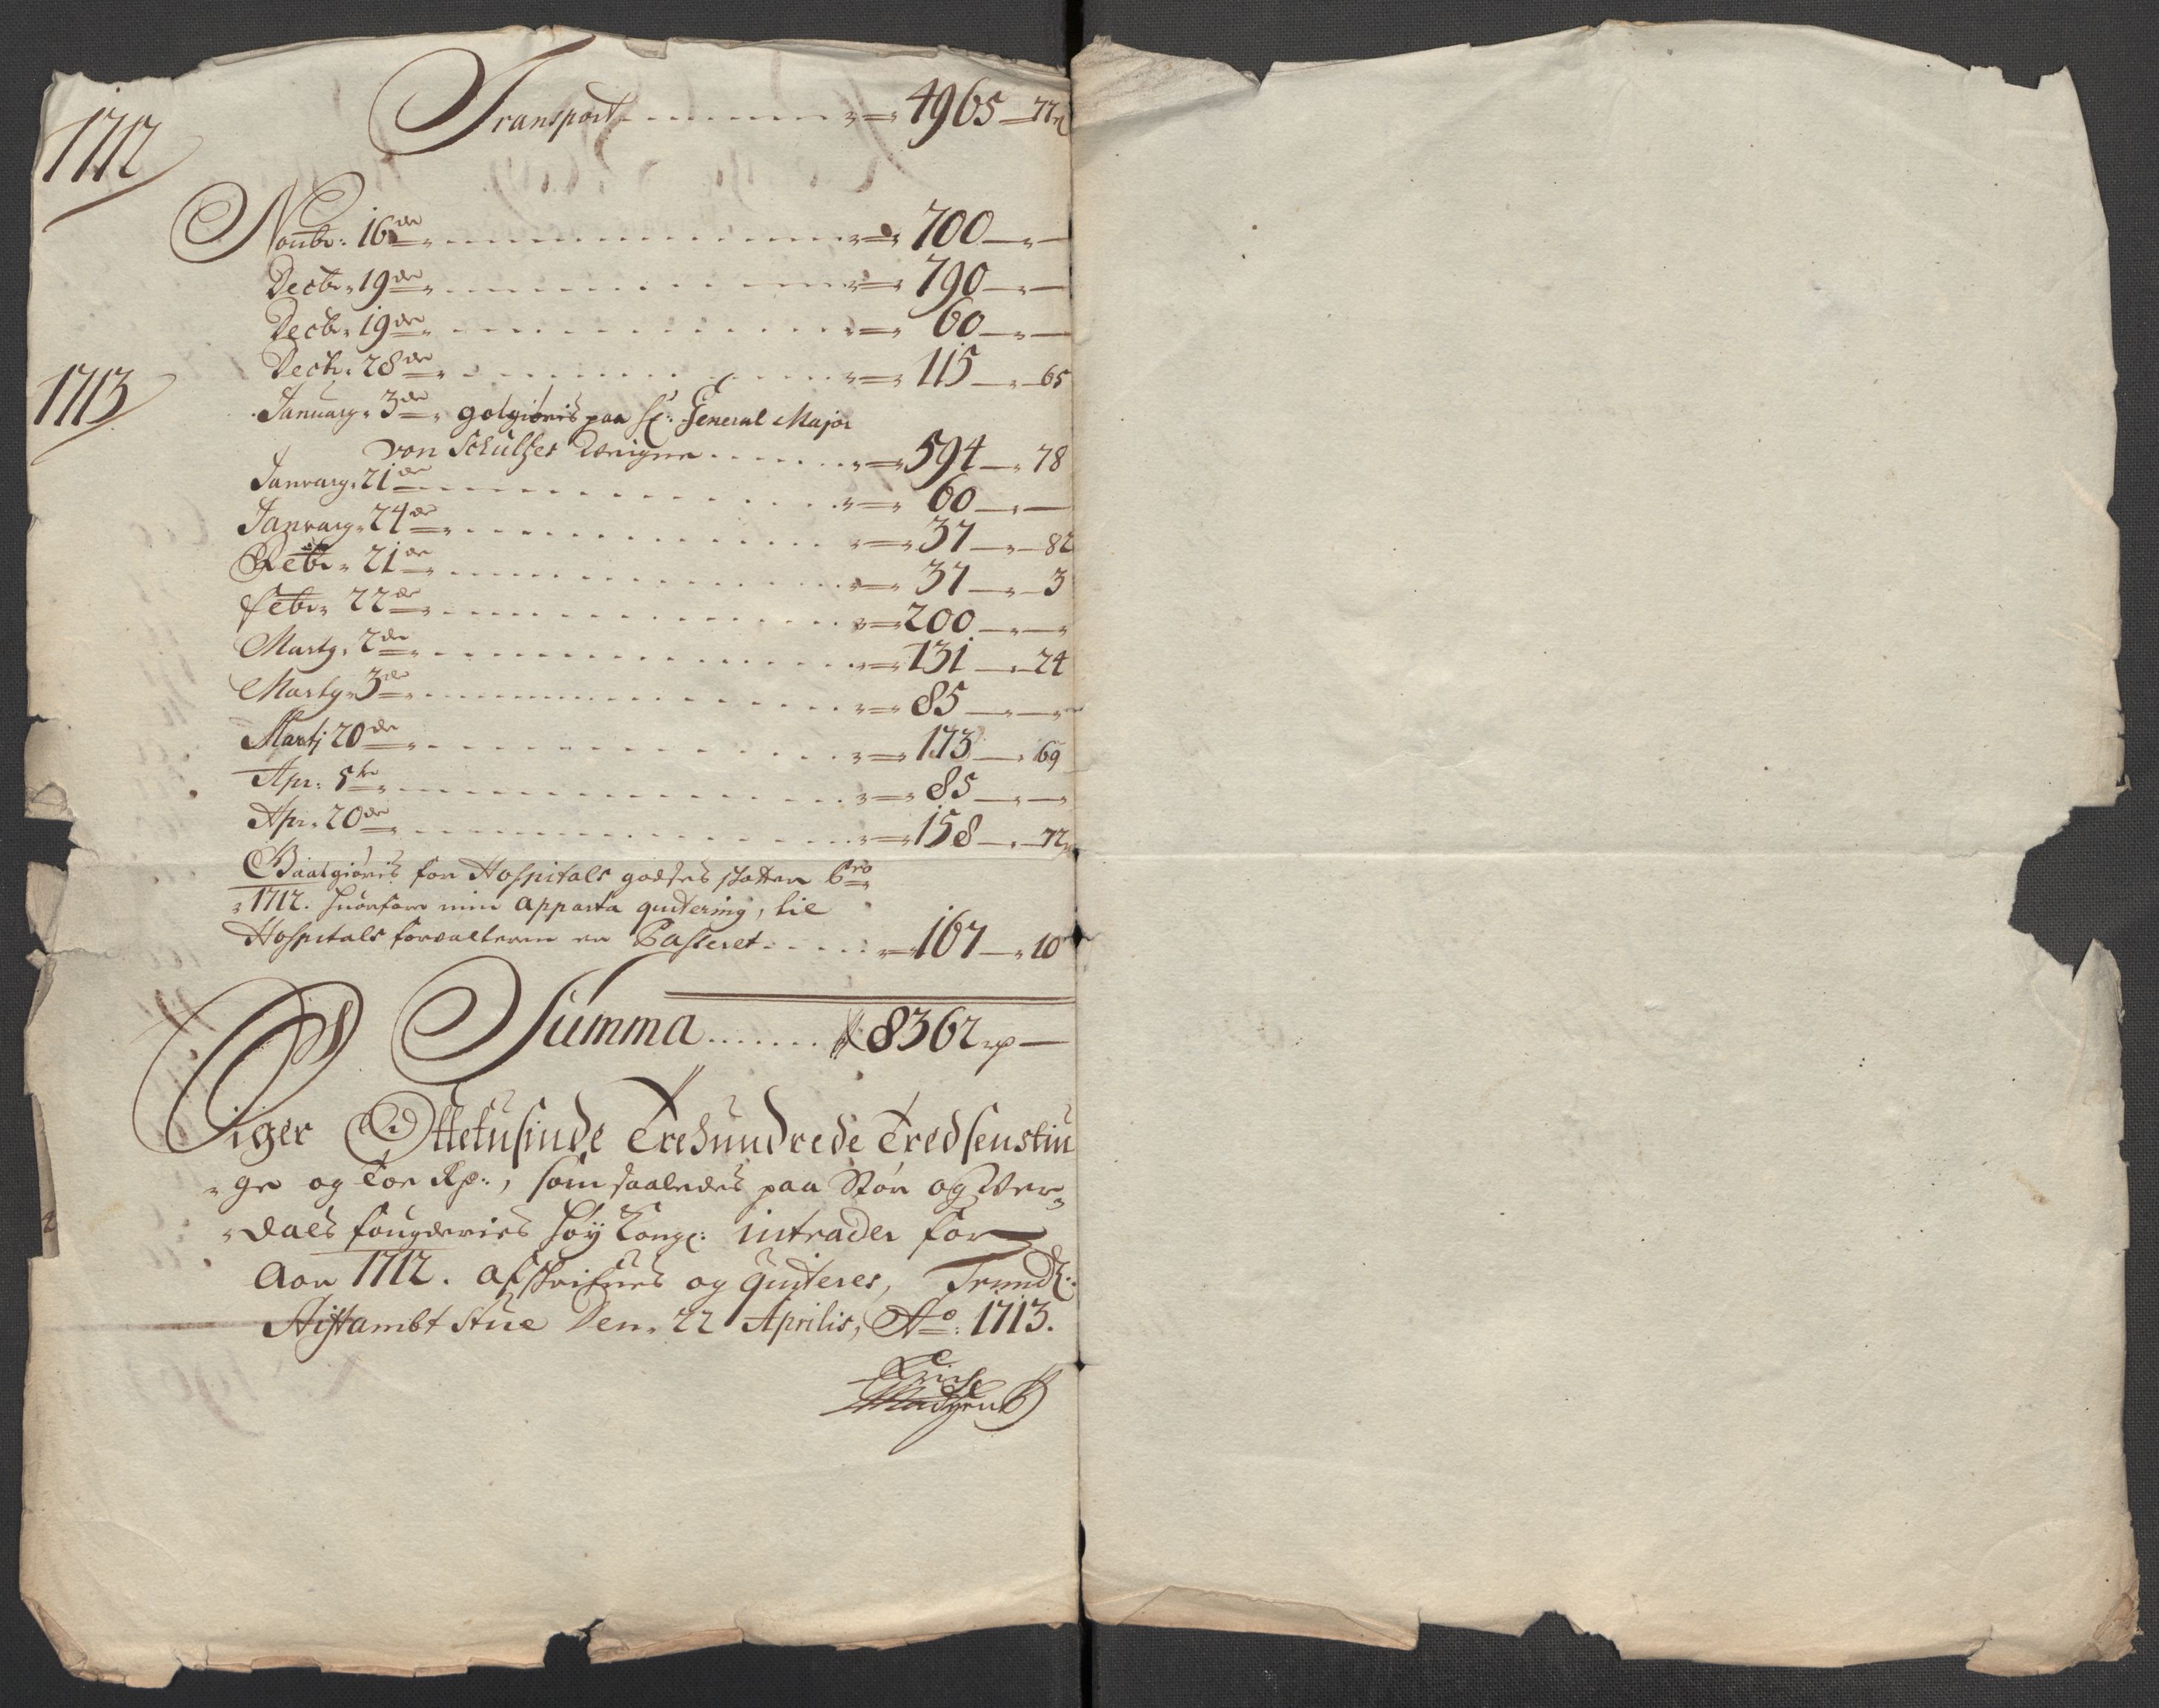 1712
Transport 4965 — 77
Novbr: 16de 700 —
Decbr. 19de 790 —
Decbr. 19de 60 —
Decbr. 28de 115 — 65
1713
January. 3de godtgiøris paa Hr: General Major
von Schultzes Regning 594 — 78
January. 21de 60 —
January. 24de 37 — 82
Febr. 21de 37 — 3
Febr. 22de 200 —
Marty. 2de 131 — 24
Marty. 3de 85 —
Martj 20de 173 — 69
Apr: 5te 85 —
Apr. 20de 158 — 72
Gaatgiøris for Hospitals godses skatter pro
1712. huorfore min apparta quitering, til
Hospitals forvalteren er Passeret 167 — 10
Summa 8362 rp —
Siger Ottetusinde Trehundrede Tredsenstiu
ge og Toe Rp:, som saaledes paa Stør og Ver-
dals fougderies høy Kongl: intrader for
Aar 1712. afskrifues og quiteres, Trundh:
Stiftambt Stue Den. 22 Aprilis, Ao: 1713.